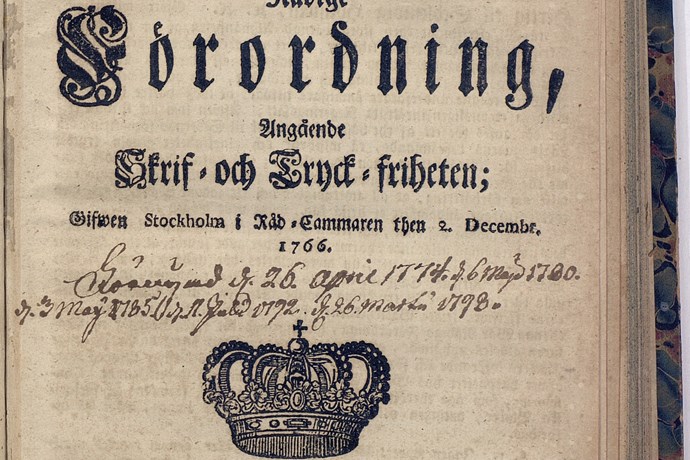 Nådige
Förordning,
Angående
Skrif-och Tryck-friheten;
Gifwen Stockholm i Råd-Cammaren then 2. Decembr.
1766.
d. 26. april 1774. d. 6 Maji 1780.
d. 3 Maÿ 1785 d. 11 1792. d. 26 Martii 1798.